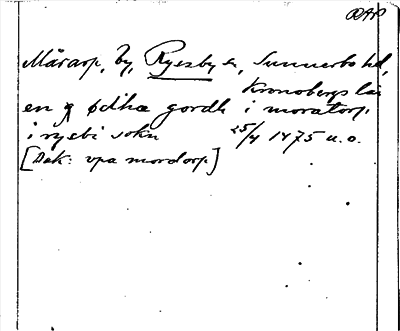 RAP
Mårarp, by, Ryssby sn, Sunnerbo hd,
Kronobergs län
en ødhæ gordh i moratorp,
i rysbi sokn 25/4 1475 u.o.
[Dak: vpa mordorp]